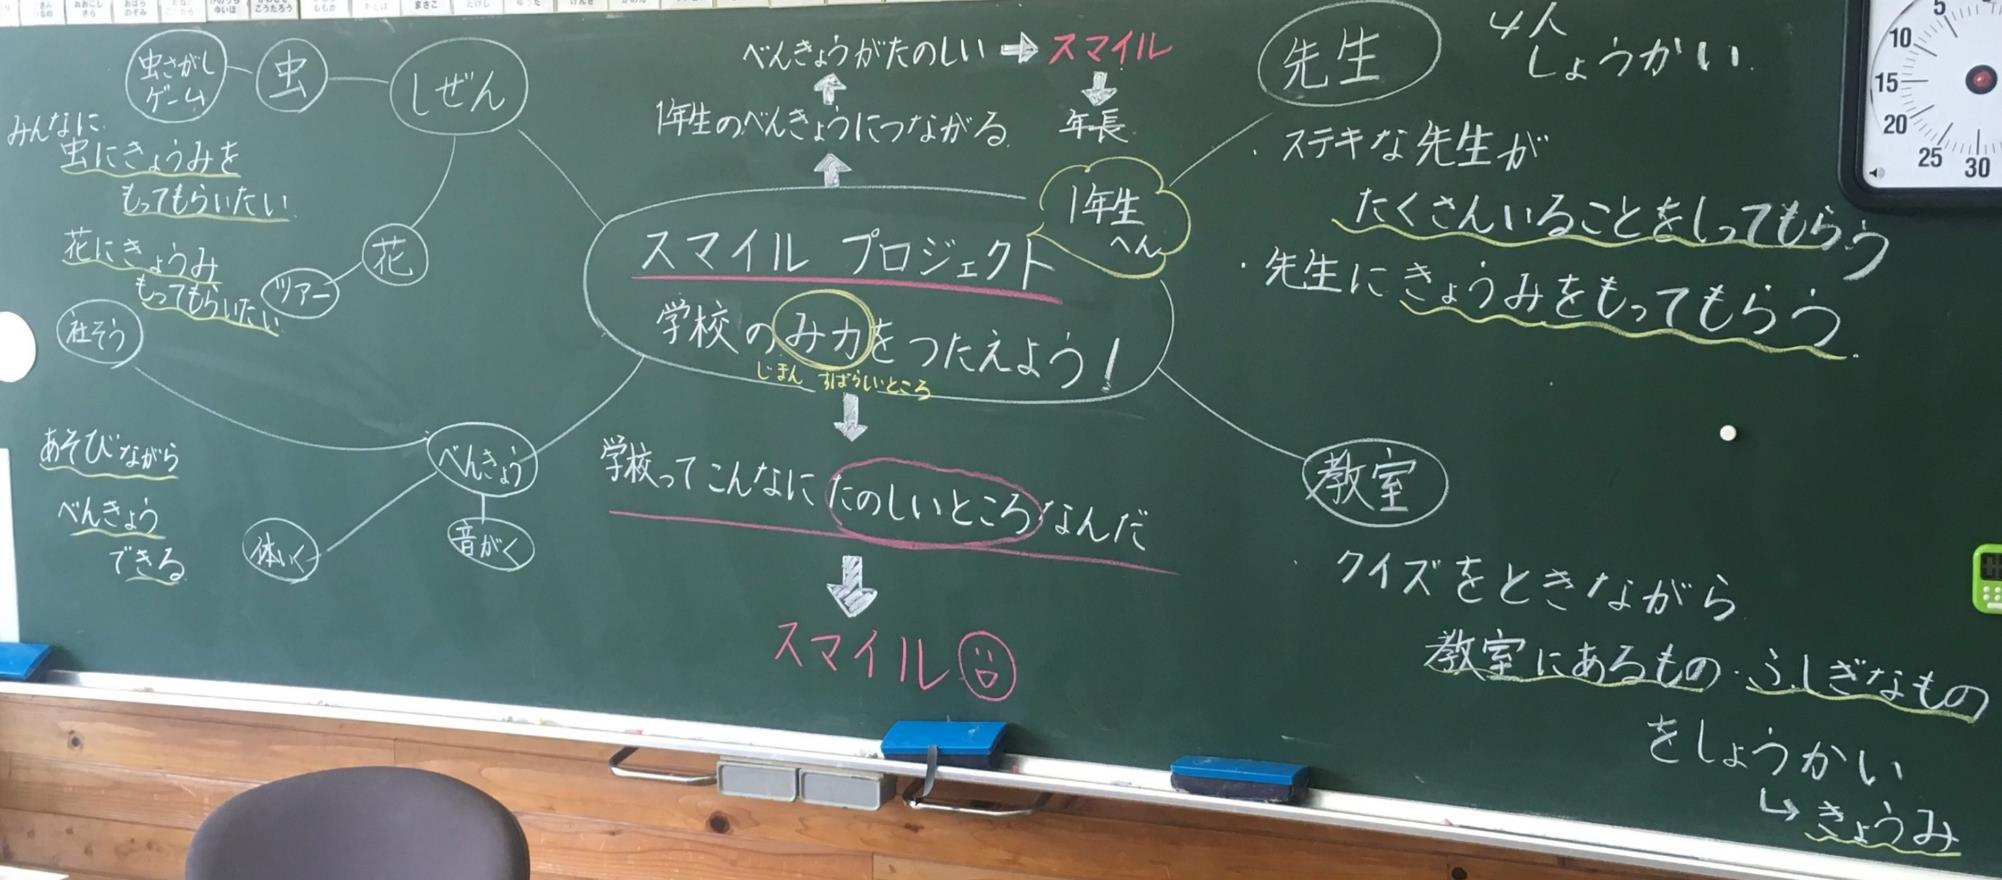 虫さがし
ゲーム
虫
しぜん
みんなに
虫にきょうみを
もってもらいたい
花にきょうみ
もってもらいたい
ツアー
花
社そう
べんきょう
あそびながら
べんきょう
できる
体いく
音がく
べんきょうがたのしい ➡ スマイル
1年生のべんきょうにつながる
年長
1年生
へん
スマイル プロジェクト
学校のみ力をつたえよう!
じまん すばらいところ
学校ってこんなにたのしいところなんだ
スマイル
先生
4人
しょうかい
・ステキな先生が
たくさんいることをしってもらう
・先生にきょうみをもってもらう
教室
・クイズをときながら
教室にあるもの・ふしぎなもの
をしょうかい
↳きょうみ
5
10
15
20
25
30